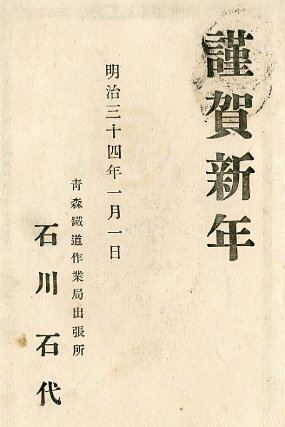 謹賀新年
明治三十四年一月一日
青森鐵道作業局出張所
石川石代